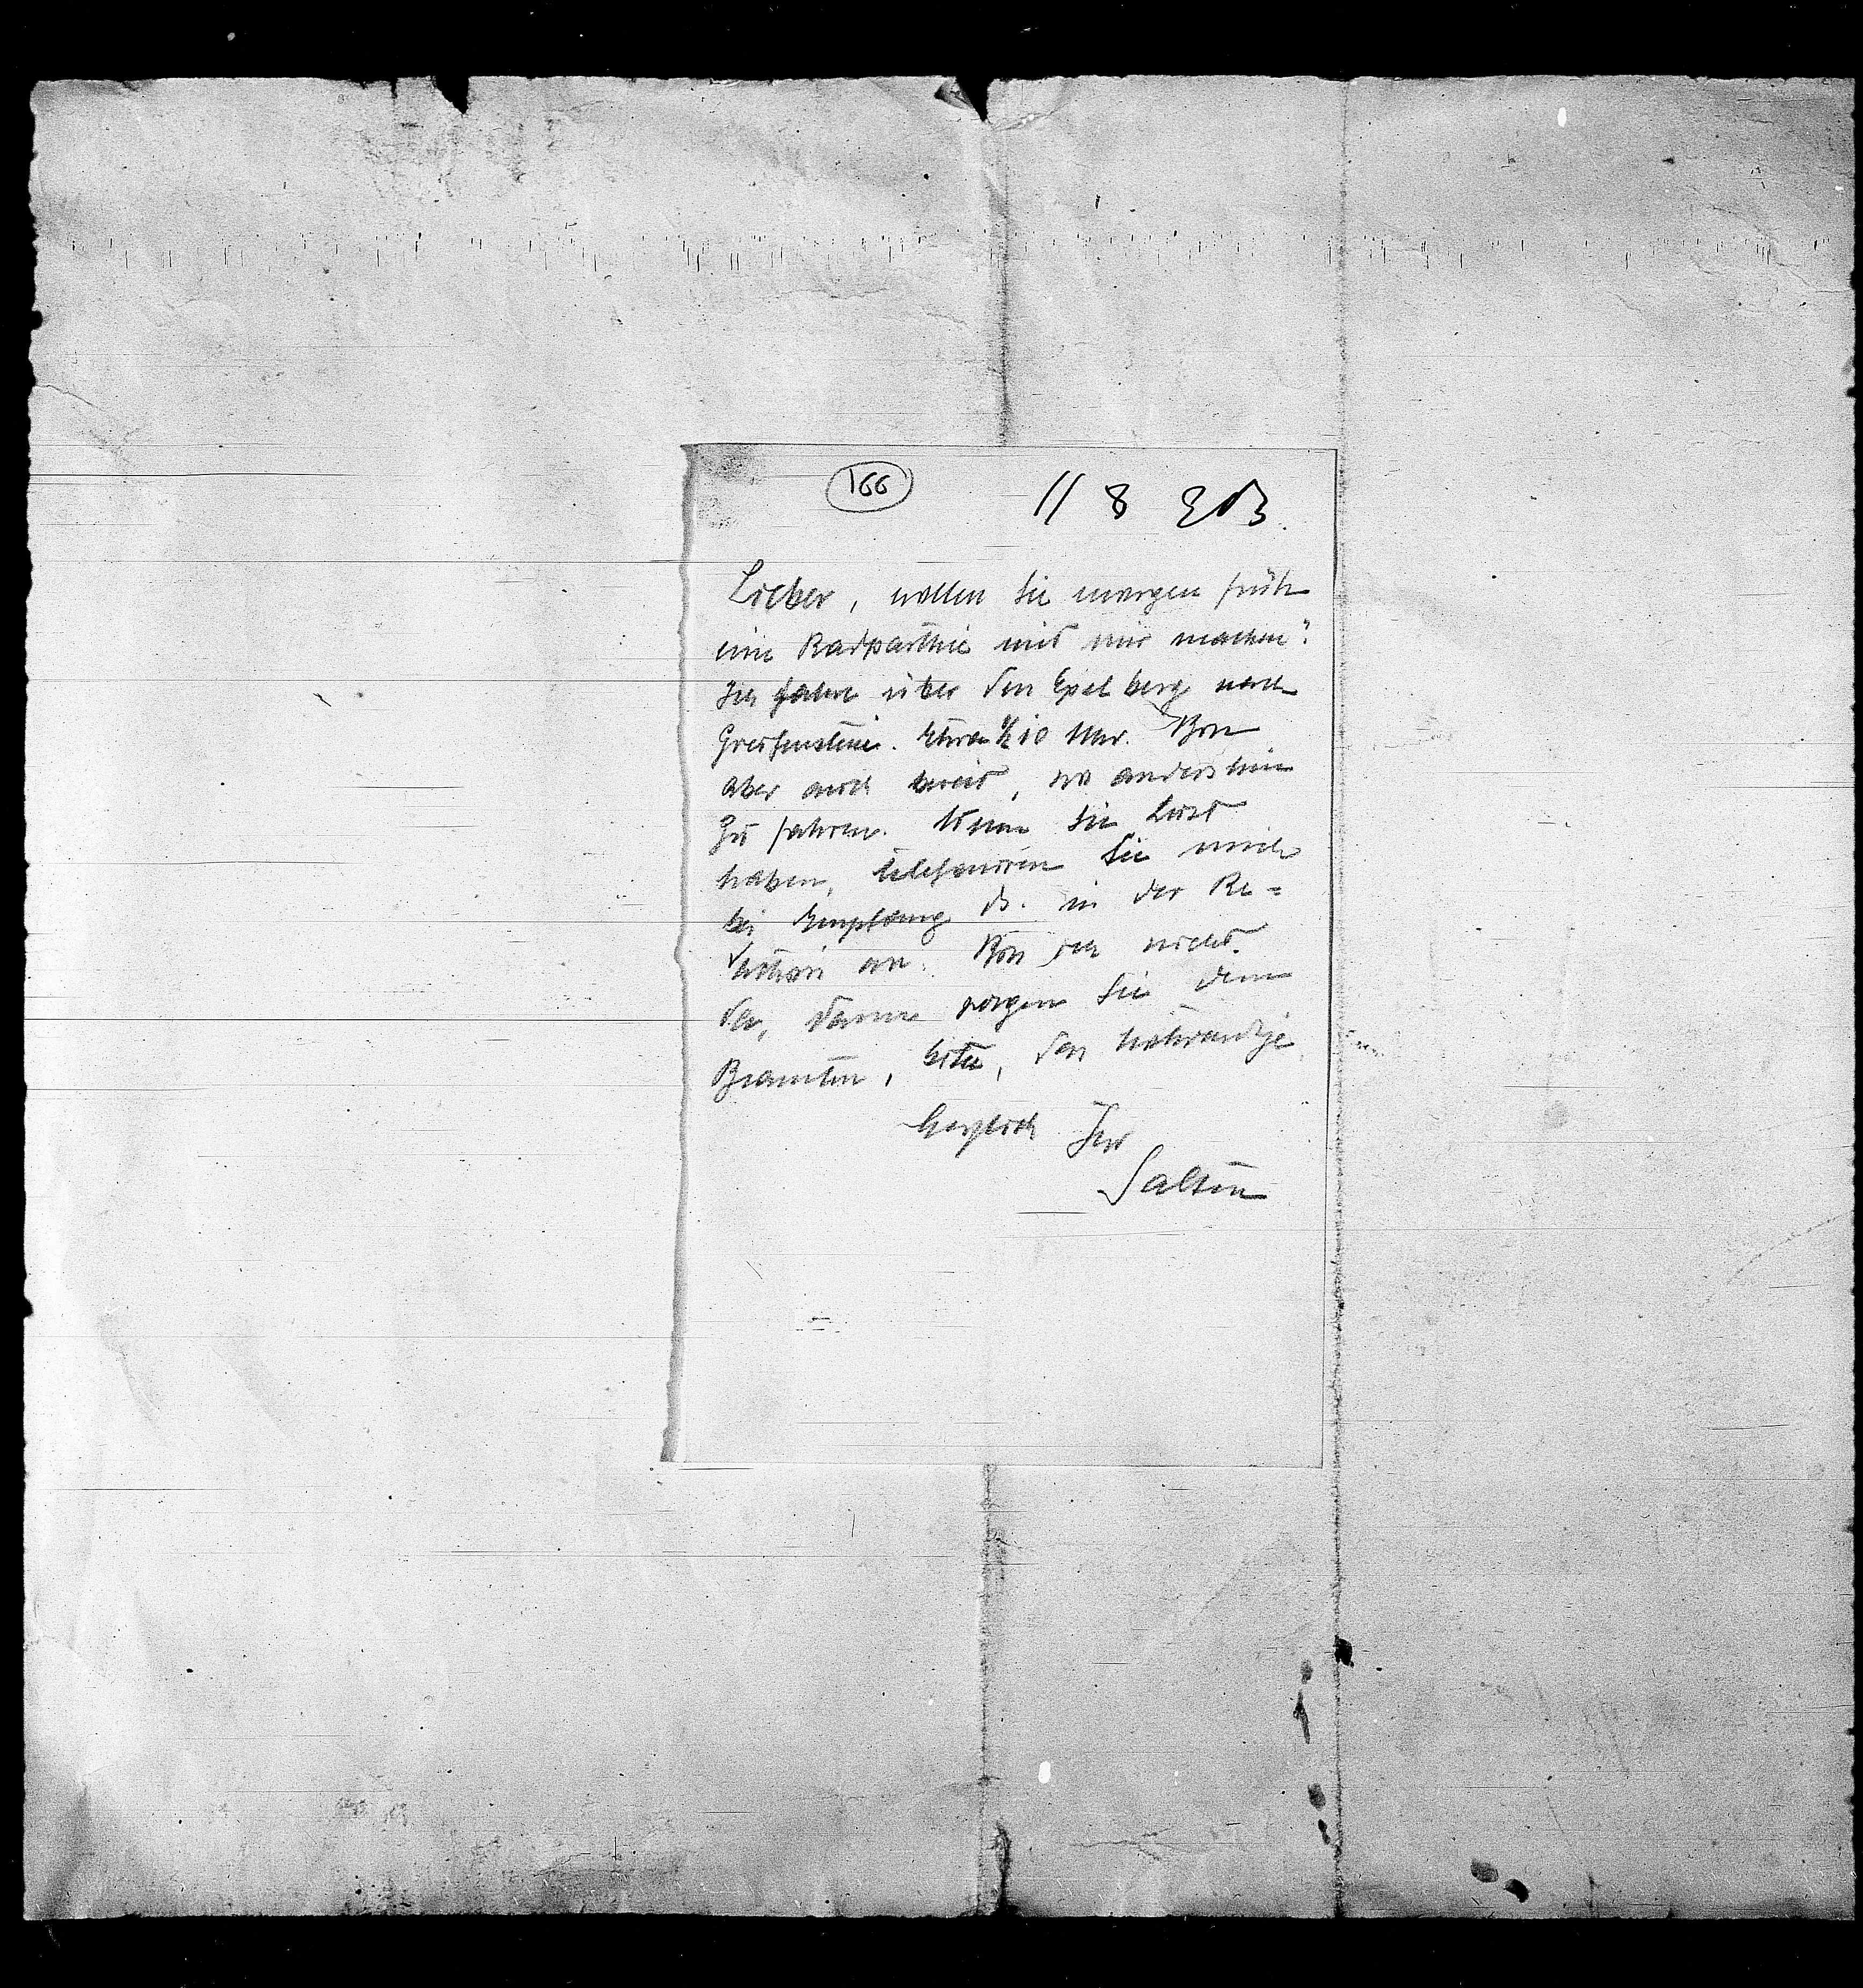 166
11 8 903.
Lieber, wollen Sie morgen früh
eine Radparthie mit mir machen?
Ich fahre über den Exelberg nach
Greifenstein. Etwa ½ 10 Uhr. Bin
aber auch bereit, wo anders hin
zu fahren. Wenn Sie Lust
haben, telefoniren Sie mich
bei Empfang ds. in der Re=
daktion an. Bin ich nicht
da, dann sagen Sie dem
Beamten, bitte, das Nothwendige
Herzlich Ihr
Salten